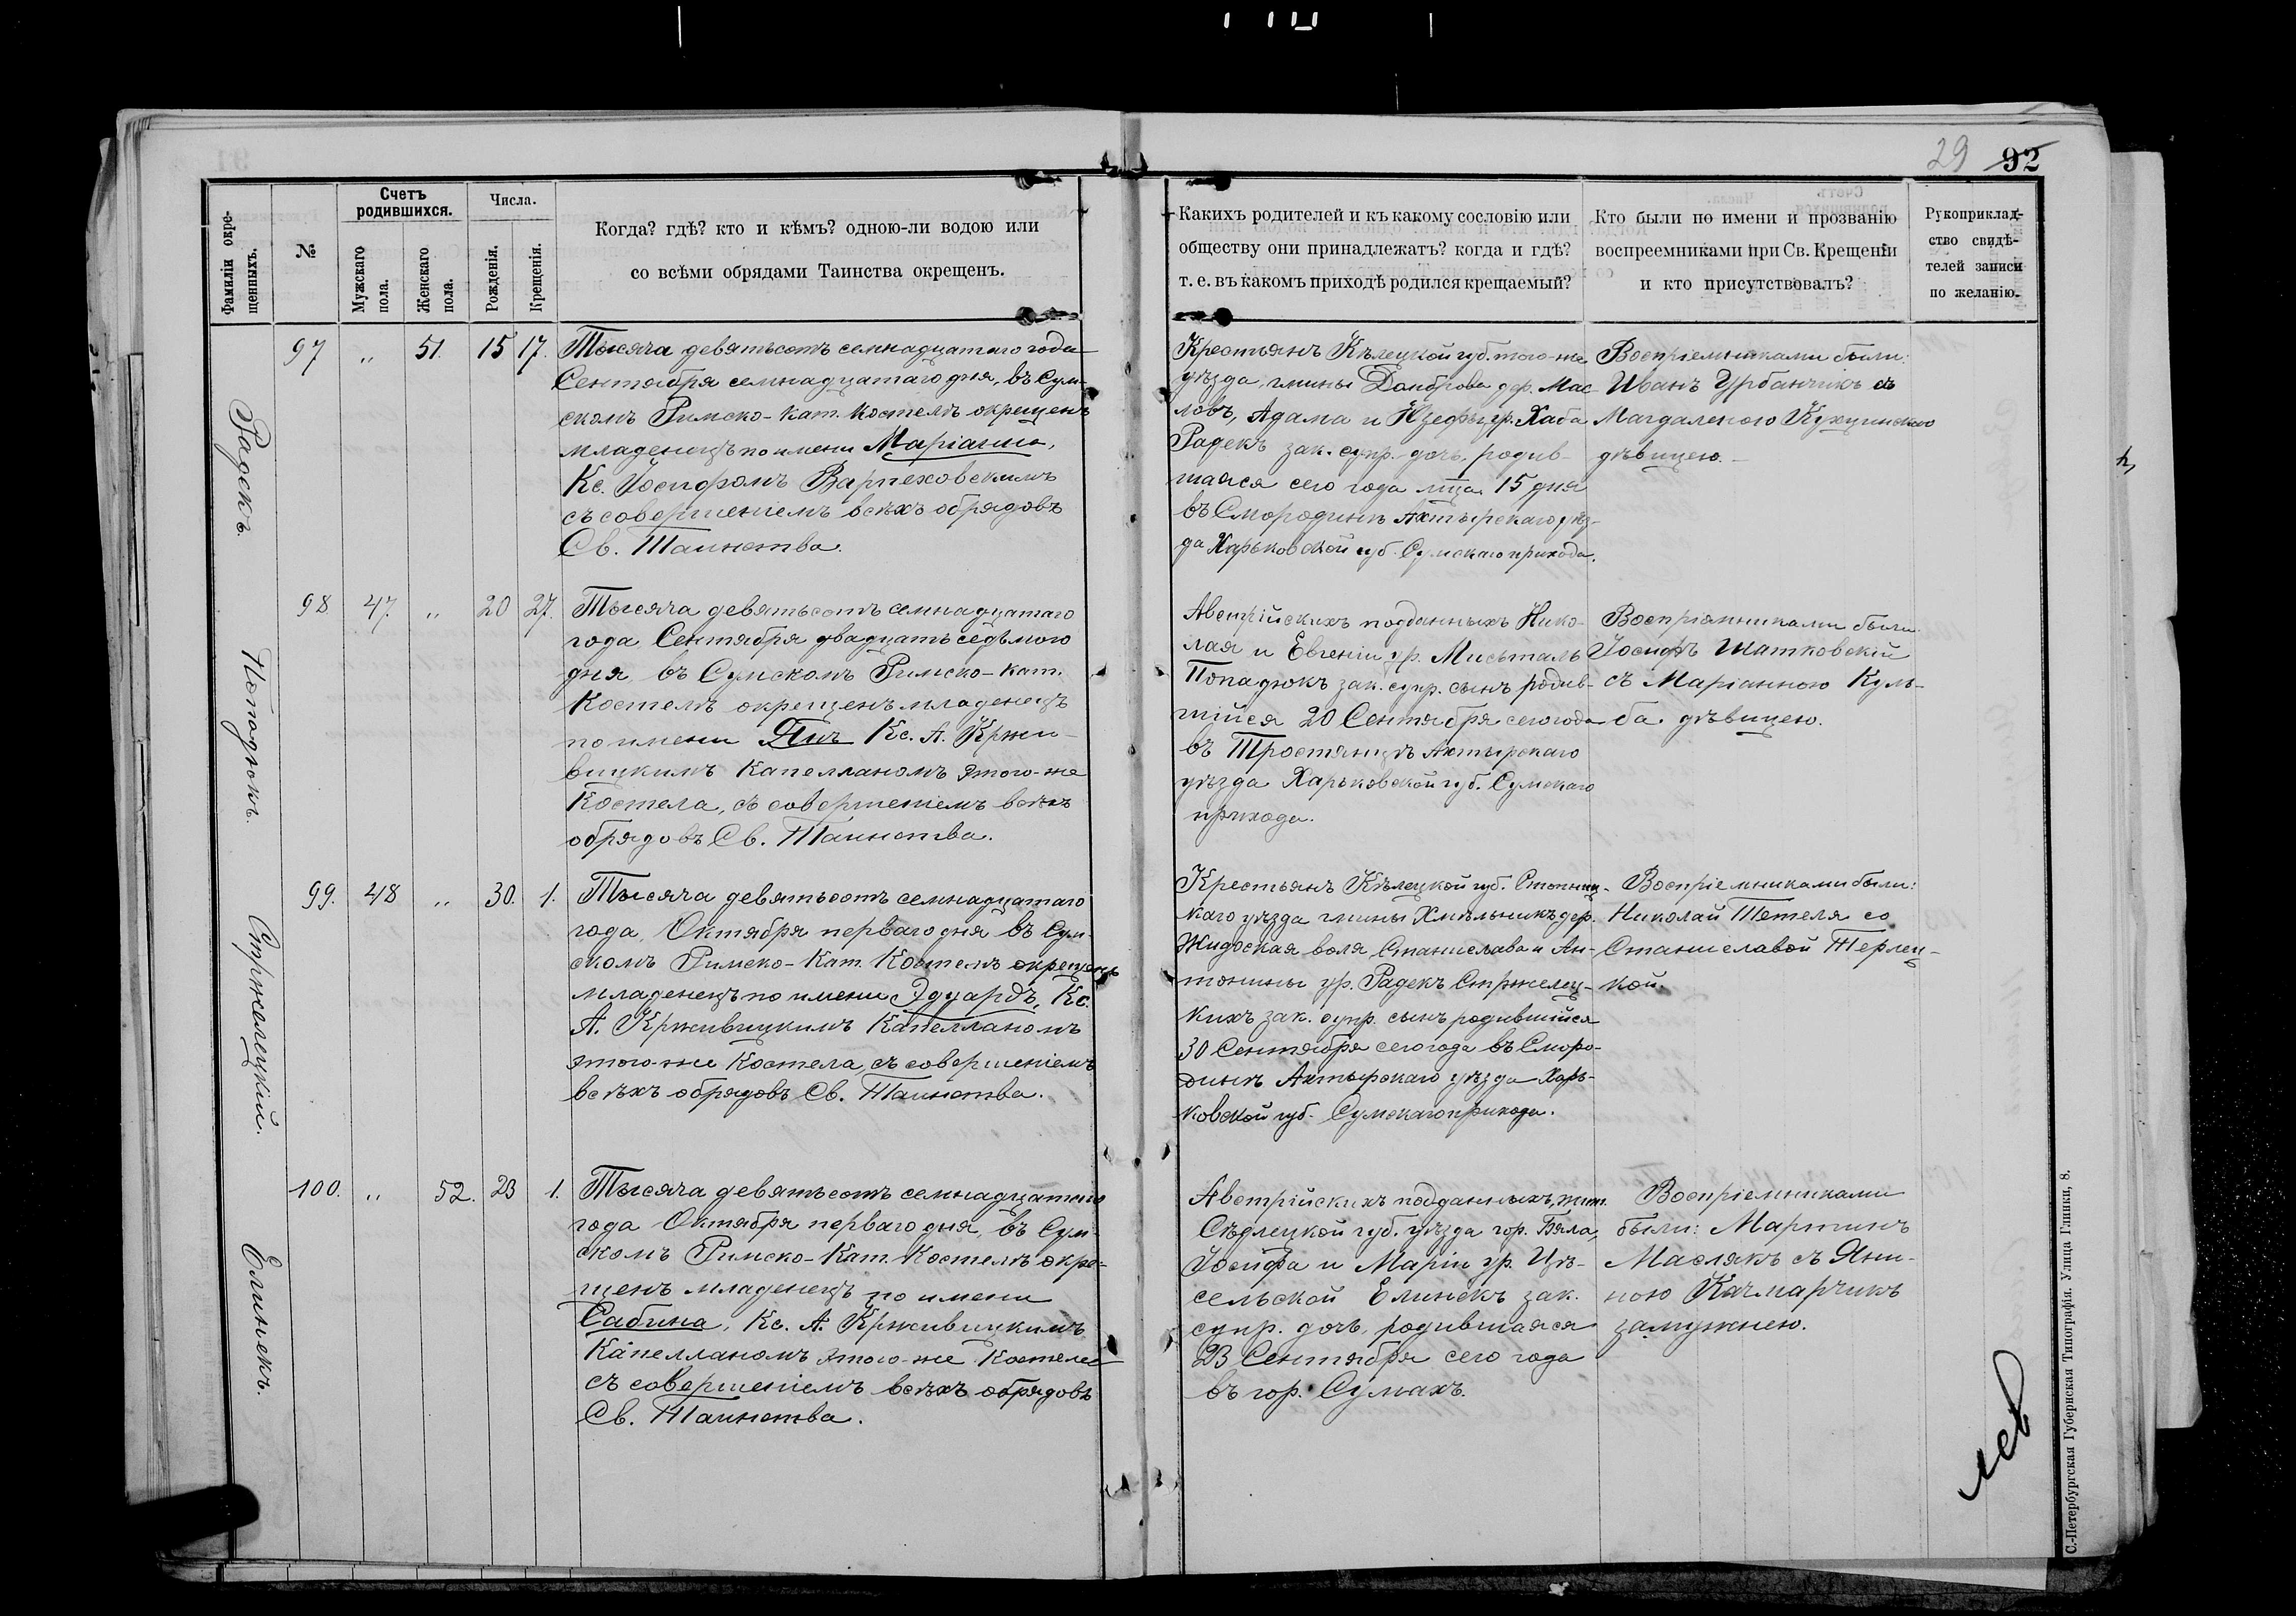 29 92
Фамиліи окре-
щенныхъ.
№
Счетъ
родившихся.
Мужскаго
пола.
Женскаго
пола.
Числа.
Рожденія.
Крещенія.
Когда? гдѣ? кто и кѣмъ? одною-ли водою или
со всѣми обрядами Таинства окрещенъ.
Какихъ родителей и къ какому сословію или
обществу они принадлежатъ? когда и гдѣ?
т. е. въ какомъ приходѣ родился крещаемый?
Кто были по имени и прозванію
воспреемниками при Св. Крещеніи
и кто присутствовалъ?
Рукоприклад-
ство свидѣ-
телей записи
по желанію.
Радекъ.
97 „ 51. 15 17.
Тысяча девятьсотъ семнадцатаго года
Сентября семнадцатаго дня, въ Сум-
скомъ Римско-Кат. Костелѣ окрещенъ
младенецъ по имени Маріанна,
Кс. Іосифомъ Варпеховскимъ
съ совершеніемъ всѣхъ обрядовъ
Св. Таинства.
Крестьянъ Кѣлецкой губ. того-же
уѣзда, гмины Домброва дер. Мас-
ловъ, Адама и Юзефы ур. Хаба
Радекъ зак. супр. дочь, родив-
шаяся сего года мца 15 дня
въ Смородинѣ Ахтырскаго уѣз-
да Харьковской губ. Сумскаго прихода.
Воспріемниками были:
Иванъ Урбанчикъ съ
Магдаленою
дѣвицею.
Попадюкъ.
98 47. „ 20 27.
Тысяча девятьсотъ семнадцатаго
года Сентября двадцать седьмого
дня въ Сумскомъ Римско-Кат.
Костелѣ окрещенъ младенецъ
по имени Янъ Кс. А. Кржи-
вицкимъ Капелланомъ этого-же
Костела, съ совершеніемъ всѣхъ
обрядовъ Св. Таинства.
Австрійскихъ подданныхъ Нико-
лая и Евгеніи ур. Мисьталь
Попадюкъ зак. супр. сынъ родив-
шійся 20 Сентября сего года
въ Тростянцѣ Ахтырскаго
уѣзда Харьковской губ. Сумскаго
прихода.
Воспріемниками были
Іосифъ Шатковскій
съ Маріанною Куль-
ба дѣвицею.
Стржелецкій.
99. 48 „ 30. 1.
Тысяча девятьсотъ семнадцатаго
года, Октября перваго дня въ Сум-
скомъ Римско-Кат. Костелѣ окрещенъ
младенецъ по имени Эдуардъ, Кс.
А. Крживицкимъ Капелланомъ
этого-же Костела, съ совершеніемъ
всѣхъ обрядовъ Св. Таинства.
Крестьянъ Кѣлецкой губ. Стопниц-
каго уѣзда гмины Хмѣльникъ дер.
Жидоская воля, Станислава и Ан-
тонины ур. Радекъ Стржелец-
кихъ зак. супр. сынъ родившійся
30 Сентября сего года въ Сморо-
динѣ Ахтырскаго уѣзда Харь-
ковской губ. Сумскаго прихода.
Воспріемниками были:
Николай Тетеля со
Станиславой Терлец-
кой.
Елинекъ.
100. „ 52. 23 1.
Тысяча девятьсотъ семнадцатаго
года Октября перваго дня, въ Сум-
скомъ Римско-Кат. Костелѣ окре-
щенъ младенецъ по имени
Сабина, Кс. А. Крживицкимъ
Капелланомъ этого-же Костела
съ совершеніемъ всѣхъ обрядовъ
Св. Таинства.
Австрійскихъ подданныхъ, жит.
Сѣдлецкой губ. уѣзда гор. Бяла,
Іосифа и Маріи ур. Цѣ-
сельской Елинекъ зак.
супр. дочь, родившаяся
23 Сентября сего года
въ гор. Сумахъ.
Воспріемниками
были: Мартинъ
Маслякъ съ Яни-
ною Качмарчикъ
замужнею.
С.-Петербургская Губернская Типографія. Улица Глинки, 8.